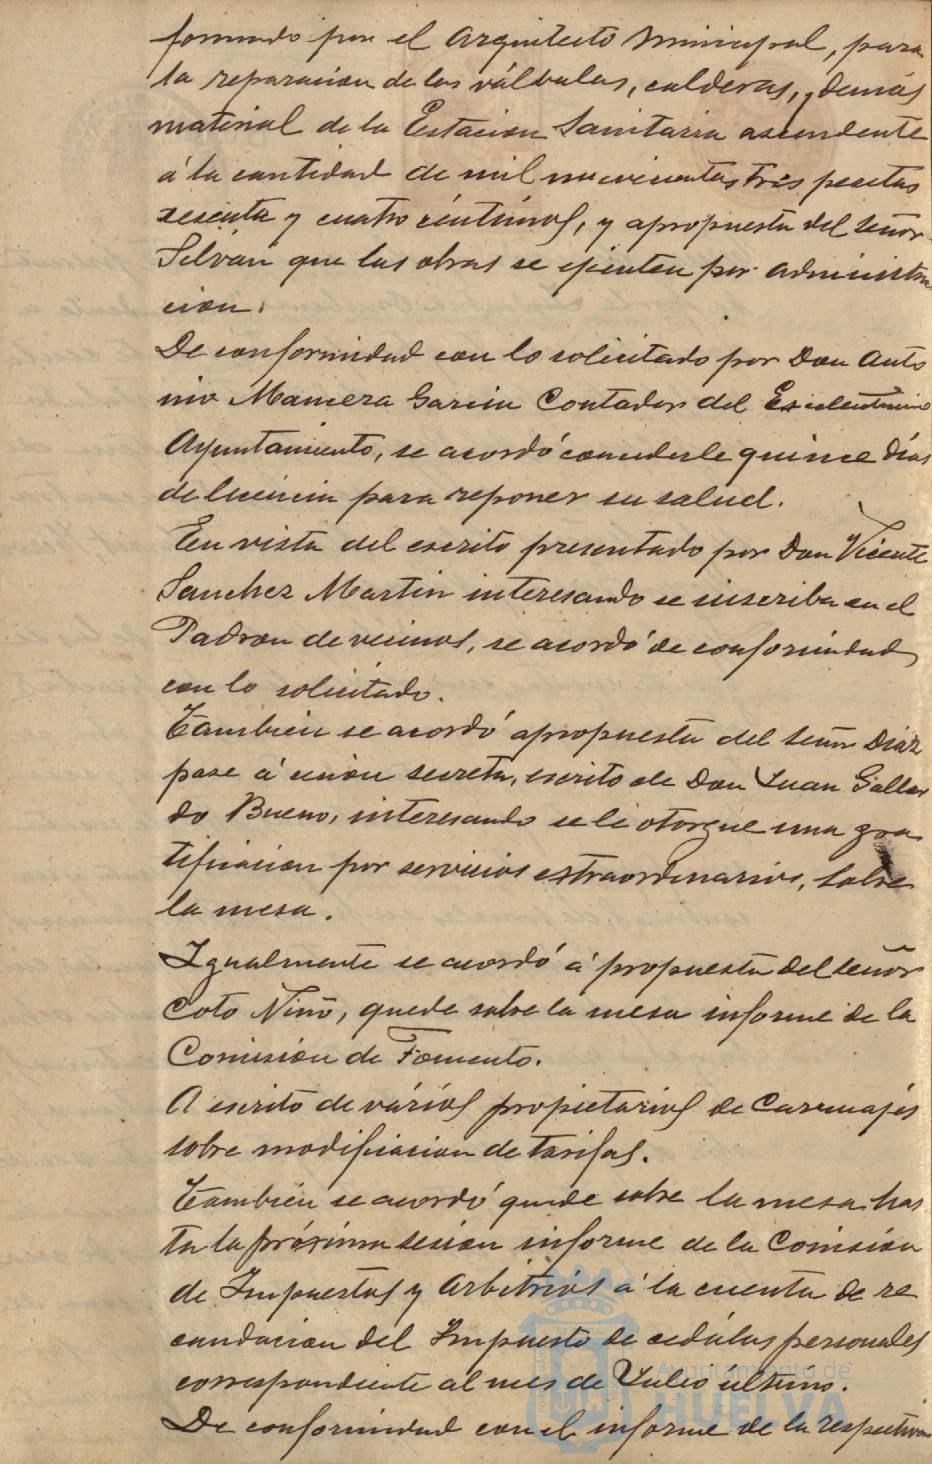 formado por el Arquitecto Municipal, para
la reparacion de las válbulas, calderas, y demás
material de la Estacion Sanitaria ascendente
á la cantidad de mil nuevecientas tres pesetas
sesenta y cuatro céntimos, y apropuesta del señor
Silván que las obras se ejecuten por administra
cion.
De conformidad con lo solicitado por Don Anto
nio Mancera Garcia Contador del Excelentisimo
Ayuntamiento, se acordó concederle quince días
de licencia para reponer su salud.
En vista del escrito presentado por Don Vicente
Sanchez Martin interesando se inscriba en el
Padron de vecinos, se acordó de conformidad
con lo solicitado.
También se acordó apropuesta del señor Diaz
pase á sesion secreta, escrito de Don Juan Gallar
do Bueno, interesando se le otorgue una gra
tificacion por servicios extraordinarios, sobre
la mesa.
Igualmente se acordó á propuesta del señor
Coto Niño, quede sobre la mesa informe de la
Comisión de Fomento.
A escrito de vários propietarios de Carruajes
sobre modificacion de tarifas.
También se acordó quede sobre la mesa has
ta la próxima sesion informe de la Comisión
de Impuestos y Arbitrios á la cuenta de re
caudacion del Impuesto de cedulas personales
correspondiente al mes de Julio ultimo.
De conformidad con el informe de la respectiva
Ayuntamiento de
HUELVA